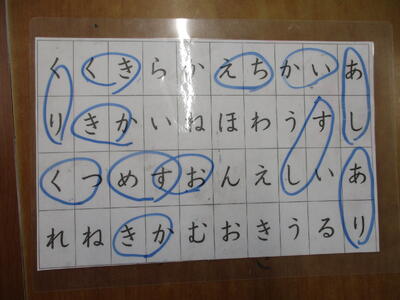 くくきらかえちかいあ
りきかいねほわうすし
くつめすおんえしいあ
れねきかむおきうるり